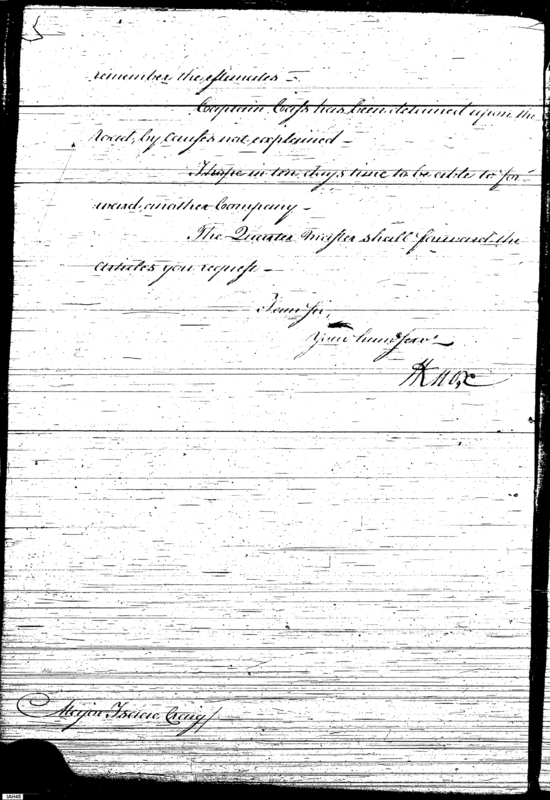 remember the estimates —
Captain Cass has been detained upon the
road, by causes not explained —
I hope in ten days time to be able to for-
ward another Company —
The Quarter Master shall forward the
articles you request —
I am sir,
Your hum serv
HKnox
Major Isaac Craig
IAH45